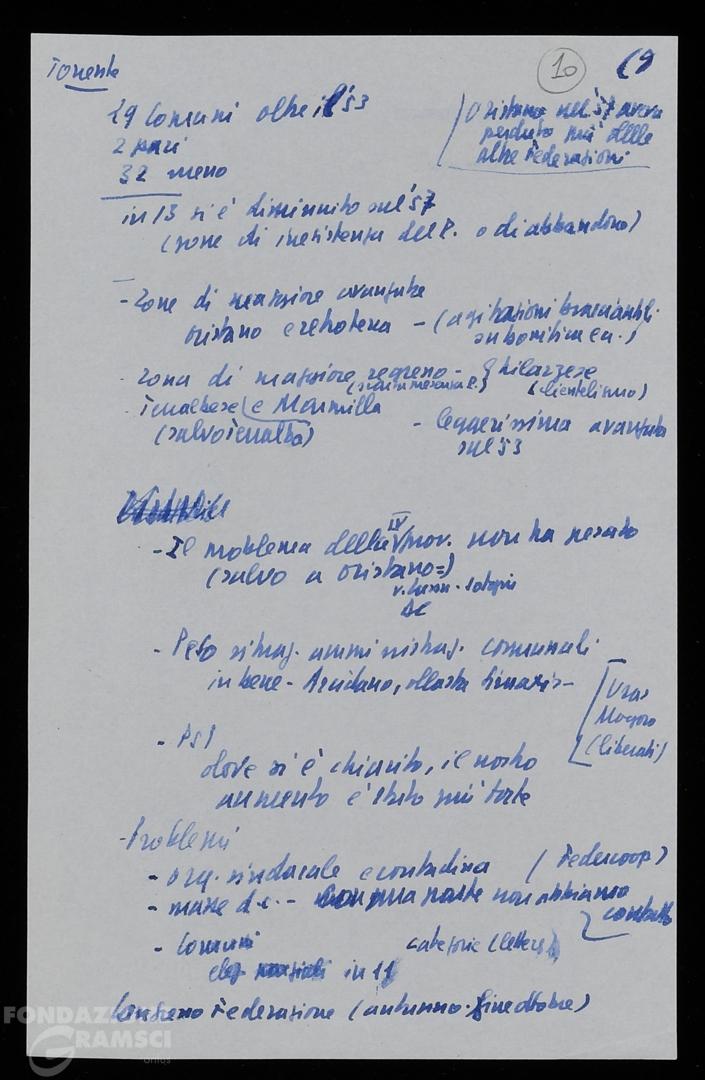 Torrente
10
29 Comuni oltre il '53
2 pari
32 meno
Oristano nel '57 aveva
perduto più delle
altre Federazioni
in 13 si è diminuito sul '57
(zone di inesistenza del P. o di abbandono)
- Zone di maggiore avanzata
oristano e - (agitazioni bracciantili
- Zona di maggiore regresso - Ghilarzese
(clientelismo)
e Marmilla
- leggerissima avanzata
sul '53
- Il problema della IV prov. non ha pesato
(salvo a Oristano =)
DC
- Peso situaz. amministraz. comunali
in bene -
Uras
Mogoro
(liberati)
- PSI
dove si è chiarito, il nostro
aumento è stato più forte
- Problemi
- org. sindacale e contadina (Federcoop)
- masse d.c. - con una parte non abbiamo
contatto
- Comuni
categorie (lettere)
in 11
Congresso Federazione (autunno - fine ottobre)
FONDAZIONE
GRAMSCI
onlus